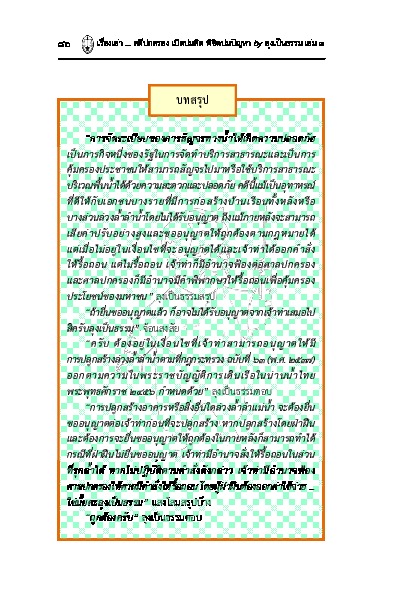 ๘๖ เรื่องเล่า ... คดีปกครอง เปิดปมคิด พิชิตปมปัญหา by ลุงเป็นธรรม เล่ม ๓
บทสรุป
"การจัดระเบียบของการสัญจรทางน้ำให้เกิดความปลอดภัย
เป็นภารกิจหนึ่งของรัฐในการจัดทำบริการสาธารณะและเป็นการ
คุ้มครองประชาชนให้สามารถสัญจรไปมาหรือใช้บริการสาธารณะ
บริเวณพื้นน้ำได้ด้วยความสะดวกและปลอดภัย คดีนี้แม้เป็นอุทาหรณ์
ที่ดีให้กับเอกชนบางรายที่มีการก่อสร้างบ้านเรือนทั้งหลังหรือ
บางส่วนล่วงล้ำลำน้ำโดยไม่ได้รับอนุญาต ถึงแม้ภายหลังจะสามารถ
เสียค่าปรับอย่างสูงและขออนุญาตให้ถูกต้องตามกฎหมายได้
แต่เมื่อไม่อยู่ในเงื่อนไขที่จะอนุญาตได้และเจ้าท่าได้ออกคำสั่ง
ให้รื้อถอน แต่ไม่รื้อถอน เจ้าท่าก็มีอำนาจฟ้องต่อศาลปกครอง
และศาลปกครองก็มีอำนาจมีคำพิพากษาให้รื้อถอนเพื่อคุ้มครอง
ประโยชน์ของมหาชน" ลุงเป็นธรรมสรุป
"ถ้ายื่นขออนุญาตแล้ว ก็อาจไม่ได้รับอนุญาตจากเจ้าท่าเสมอไป
สิครับลุงเป็นธรรม" จ้อนสงสัย
"ครับ ต้องอยู่ในเงื่อนไขที่จะสามารถอนุญาตให้มี
การปลูกสร้างล่วงล้ำลำน้ำตามที่กฎกระทรวง ฉบับที่ ๖๓ (พ.ศ. ๒๕๓๗)
ออกตามความในพระราชบัญญัติการเดินเรือในน่านน้ำไทย
พระพุทธศักราช ๒๔๕๖ กำหนดด้วย" ลุงเป็นธรรมตอบ
"การปลูกสร้างอาคารหรือสิ่งอื่นใดล่วงล้ำลำแม่น้ำ จะต้องยื่น
ขออนุญาตต่อเจ้าท่าก่อนที่จะปลูกสร้าง หากปลูกสร้างโดยฝ่าฝืน
และต้องการจะยื่นขออนุญาตให้ถูกต้องในภายหลังก็สามารถทำได้
กรณีที่ฝ่าฝืนไม่ยื่นขออนุญาต เจ้าท่ามีอำนาจสั่งให้รื้อถอนในส่วน
ที่รุกล้ำได้ หากไม่ปฏิบัติตามคำสั่งดังกล่าว เจ้าท่ามีอำนาจฟ้อง
ศาลปกครองให้ศาลมีคำสั่งให้รื้อถอน โดยผู้ฝ่าฝืนต้องออกค่าใช้จ่าย ...
ใช่มั้ยคะลุงเป็นธรรม" แสงโสมสรุปบ้าง
"ถูกต้องครับ" ลุงเป็นธรรมตอบ